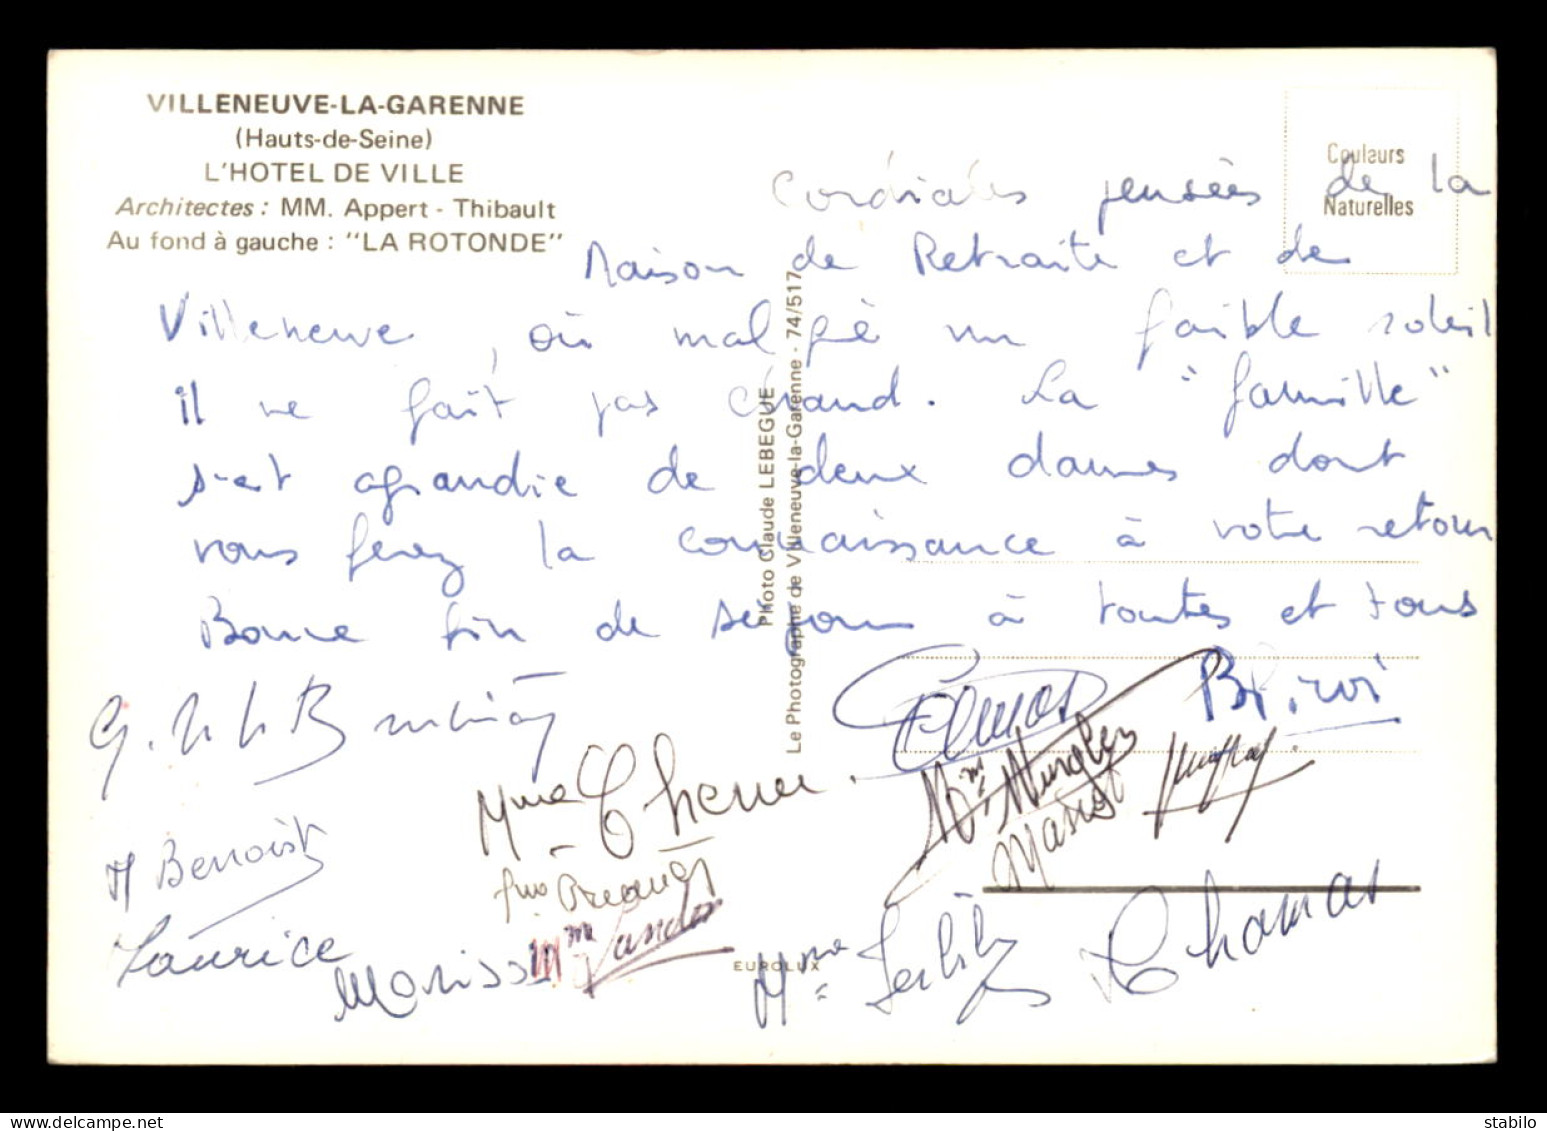 VILLENEUVE-LA-GARENNE
(Hauts-de-Seine)
L'HOTEL DE VILLE
Architectes : MM. Appert - Thibault
Au fond à gauche : "LA ROTONDE"
Couleurs
Naturelles
Cordiales pensées de la
Maison de Retraite et de
Villeneuve, où malgré un faible soleil
il ne fait pas chaud. La "famille"
s'est agrandie de deux dames dont
vous ferez la connaissance à votre retour
Bonne fin de séjour à toutes et tous
Photo Claude LEBEGUE
Le Photographe de Villeneuve-la-Garenne - 74/517
Mme
M Benoist
Maurice
Mme
Mme
Mme
Thomas
EUROLUX
stabilo